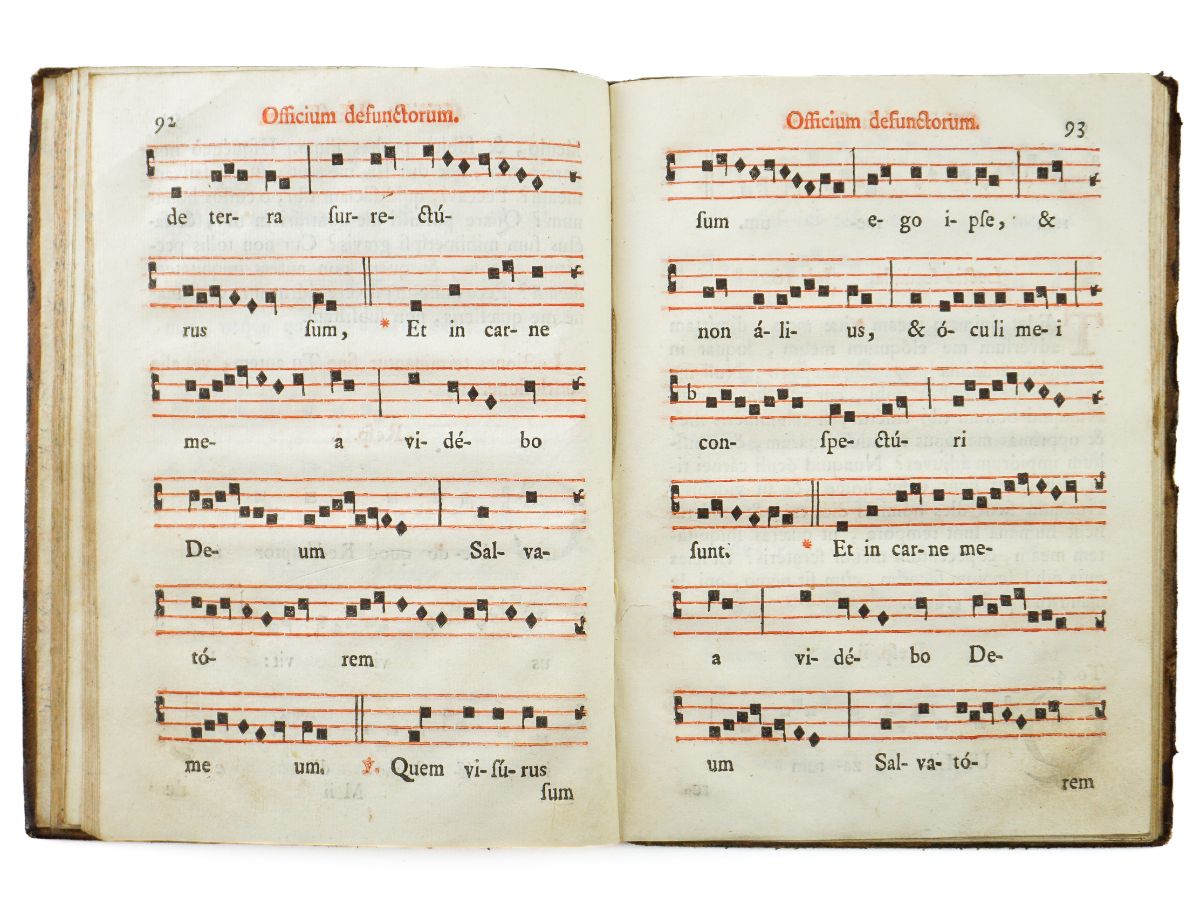 92
Officium defunctorum.
de ter- ra ſur- re- ctú-
rus ſum, * Et in car- ne
me- a vi- dé- bo
De- um Sal- va-
tó- rem
me um. ℣. Quem vi- ſú- rus
ſum
Officium defunctorum.
93
ſum e- go i- pſe, &
non á- li- us, & ó- cu li me- i
b
con- ſpe- ctú- ri
ſunt. * Et in car- ne me-
a vi- dé- bo De-
um Sal- va- tó-
rem